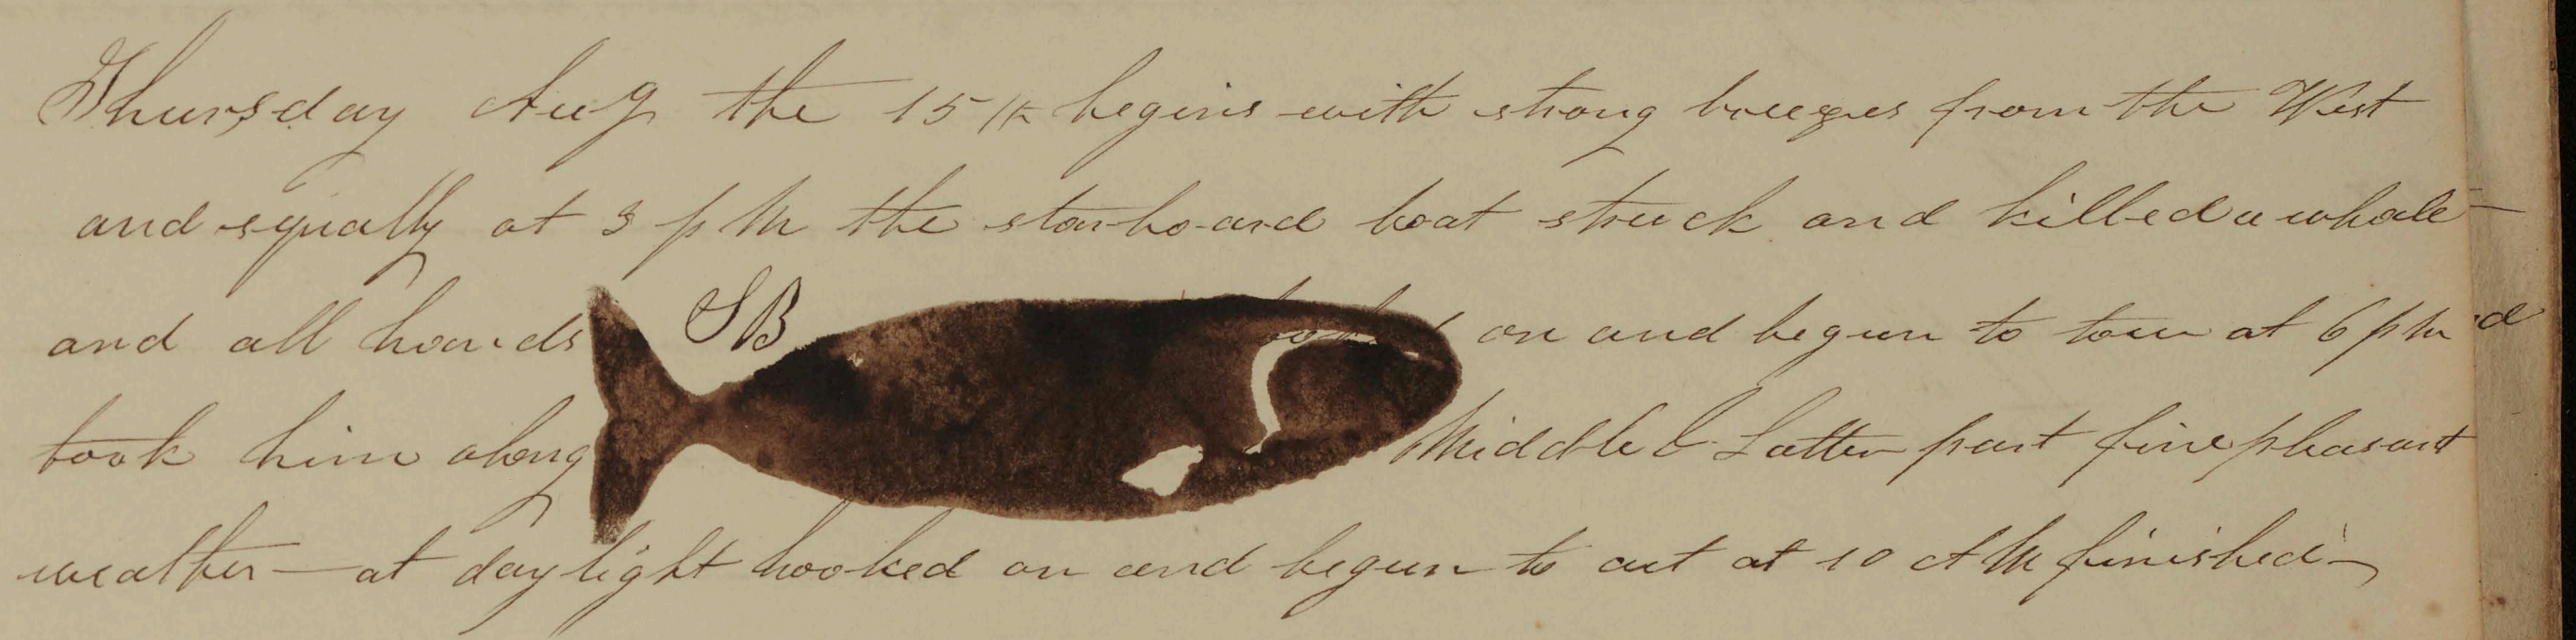 Thursday Aug the 15th begins with strong breezes from the West
and squally at 3 p M the starboard boat struck and killed a whale
and all hands SB hooked on and begun to tow at 6 p M
took him along Middle & Latter part fine pleasant
weather — at daylight hooked on and begun to cut at 10 A M finished